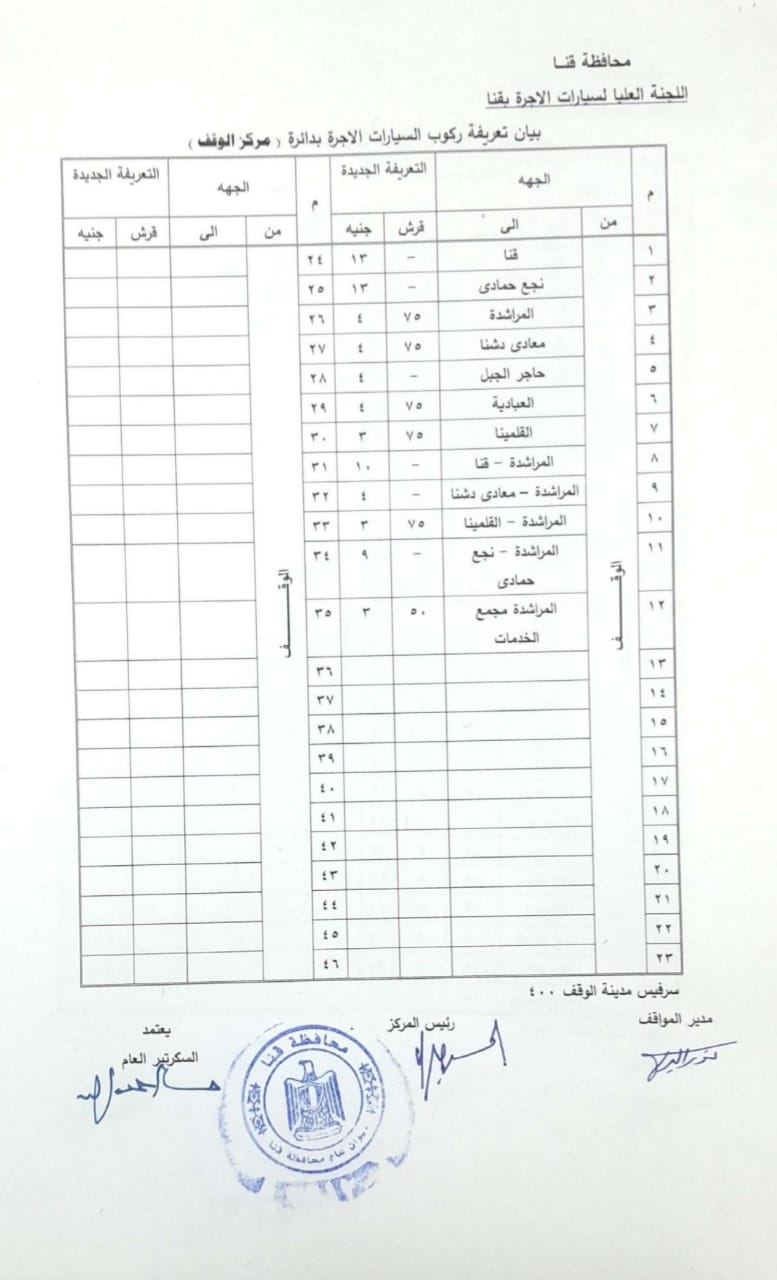 محافظة قنـا
اللجنة العليا لسيارات الاجرة بقنا
بيان تعريفة ركوب السيارات الاجرة بدائرة ( مركز الوقف )
م الجهه التعريفة الجديدة م الجهه التعريفة الجديدة
من الى قرش جنيه من الى قرش جنيه
الوقـــــــــف
الوقـــــــــف
١ قنا – ١٣ ٢٤
٢ نجع حمادى – ١٣ ٢٥
٣ المراشدة ٧٥ ٤ ٢٦
٤ معادى دشنا ٧٥ ٤ ٢٧
٥ حاجر الجبل – ٤ ٢٨
٦ العبادية ٧٥ ٤ ٢٩
٧ القلمينا ٧٥ ٣ ٣٠
٨ المراشدة – قنا – ١٠ ٣١
٩ المراشدة – معادى دشنا – ٤ ٣٢
١٠ المراشدة – القلمينا ٧٥ ٣ ٣٣
١١ المراشدة – نجع – ٩ ٣٤
حمادى
١٢ المراشدة مجمع ٥٠ ٣ ٣٥
الخدمات
١٣ ٣٦
١٤ ٣٧
١٥ ٣٨
١٦ ٣٩
١٧ ٤٠
١٨ ٤١
١٩ ٤٢
٢٠ ٤٣
٢١ ٤٤
٢٢ ٤٥
٢٣ ٤٦
سرفيس مدينة الوقف ٤٠٠
مدير المواقف رئيس المركز يعتمد
السكرتير العام
محافظة قنا
ديوان عام محافظة قنا